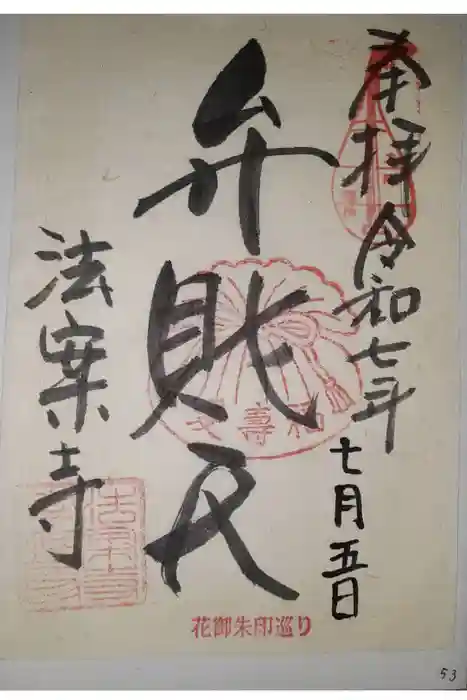 奉拝 令和七年
七月五日
弁財天
福寿
法案寺
花御朱印巡り
53